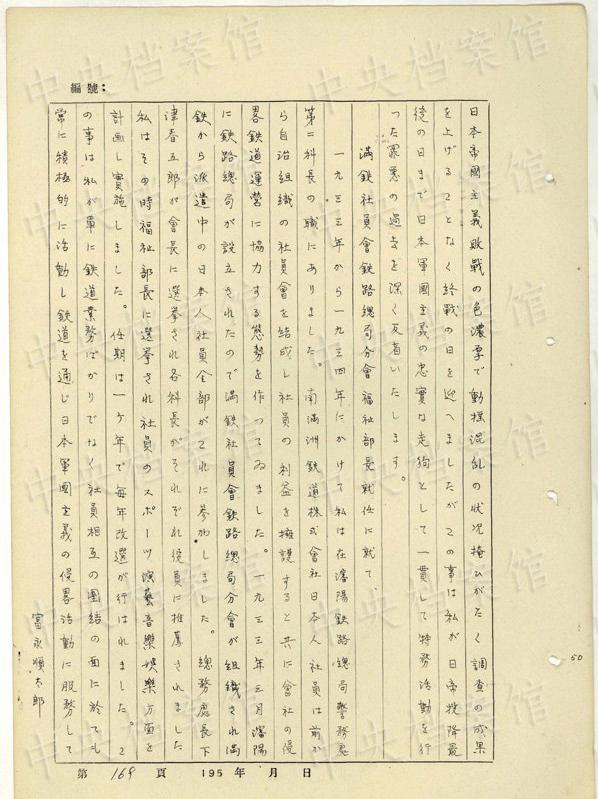 編號：
日本帝國主義敗戰の色濃厚で動揺混乱の状況掩ひがたく調査の成果
を上げることなく終戰の日を迎へましたがこの事は私が日帝投降最
後の日まで日本軍國主義の忠實な走狗として一貫して特務活動を行
つた罪悪の過去を深く反省いたします。
満鉄社員會鉄路總局分會福祉部長就任に就て、
一九三三年から一九三四年にかけて私は在瀋陽鉄路總局警務處
第二科長の職にありました。南満洲鉄道株式會社日本人社員は前か
ら自治組織の社員會を結成し社員の利益を擁護すると共に會社の侵
畧鉄道運営に協力する態勢を作つてゐました。一九三三年三月瀋陽
に鉄路總局が設立されたので満鉄社員會鉄路總局分會が組織され満
鉄から派遣中の日本人社員全部がこれに参加しました。總務處長下
津春五郎が會長に選挙され各科長がそれぞれ役員に推薦されました
私はその時福祉部長に選挙され社員のスポーツ演藝音樂娯樂方面を
計画し実施しました。任期は一ケ年で毎年改選が行はれました。こ
の事は私が單に鉄道業務ばかりでなく社員相互の團結の面に於ても
常に積極的に活動し鉄道を通じ日本軍國主義の侵畧活動に服務して
富永順太郎
50
第 169 頁 195 年 月 日
中央档案馆